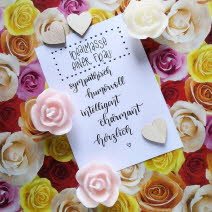 Idealmasse
einer Frau
sympathisch
humorvoll
intelligent
charmant
herzlich